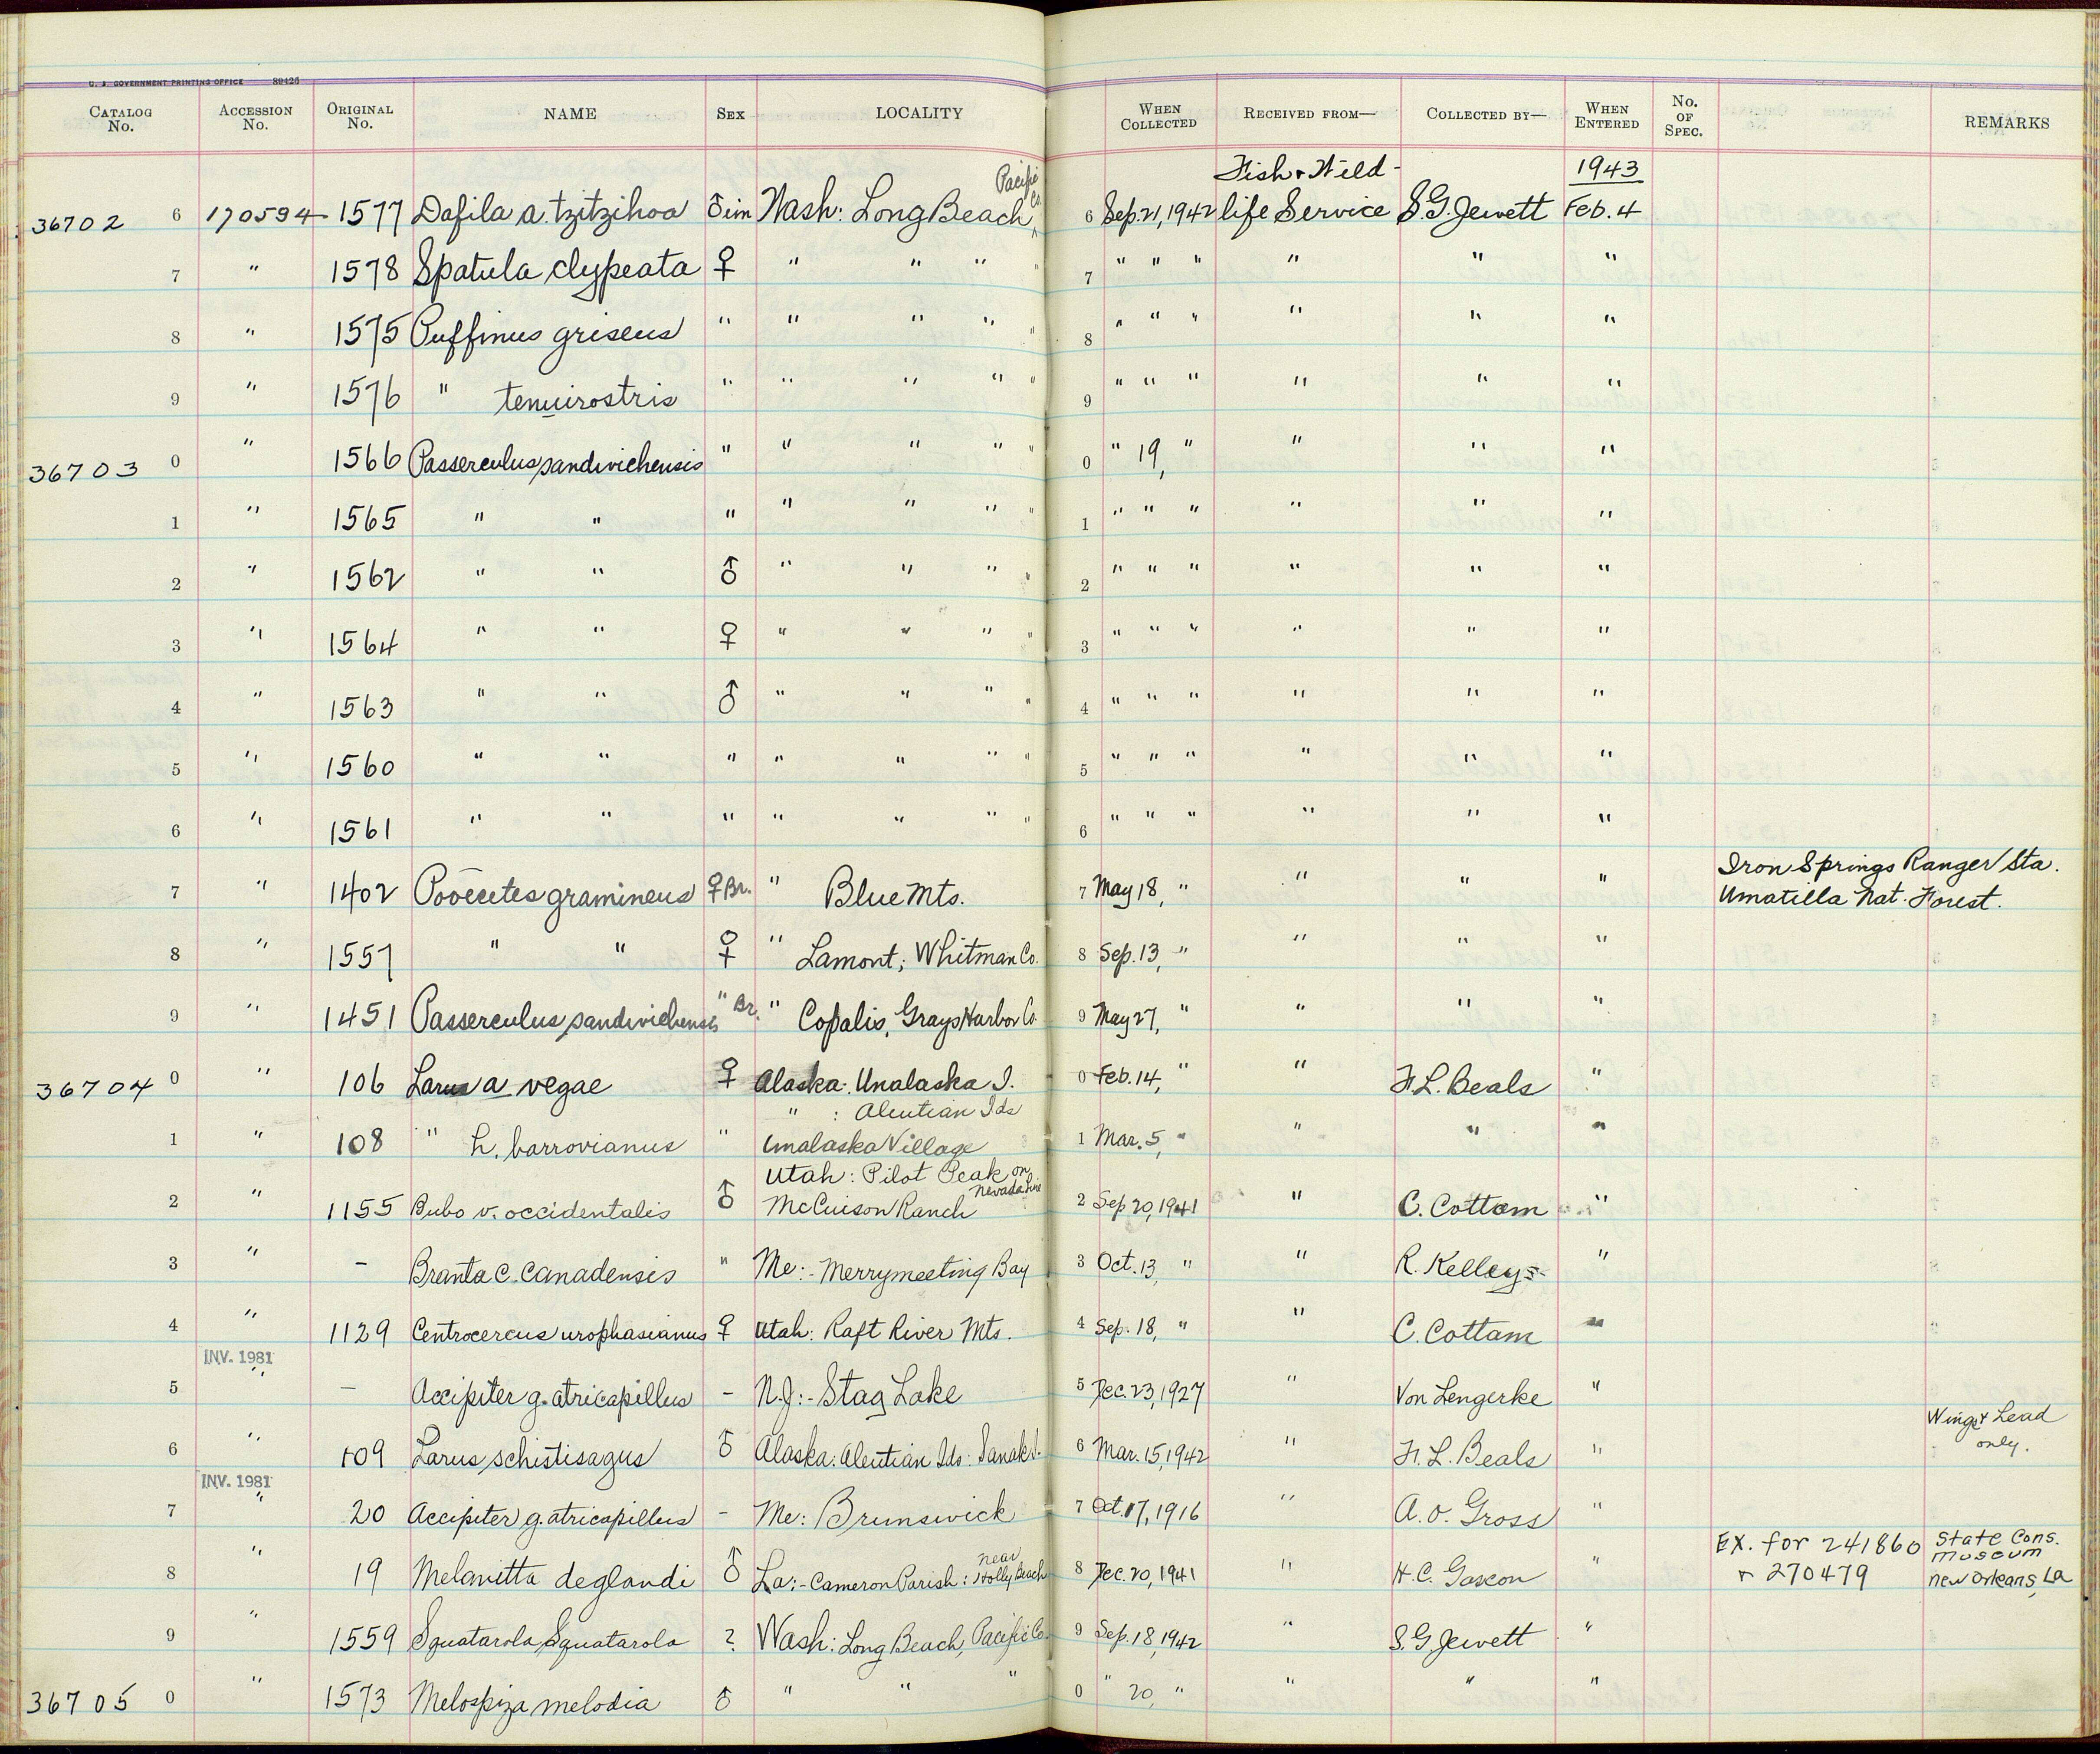 U. S. GOVERNMENT PRINTING OFFICE 89426
CATALOG No. ACCESSION No. ORIGINAL No. NAME SEX LOCALITY WHEN COLLECTED RECEIVED FROM— COLLECTED BY— WHEN ENTERED No. OF SPEC. REMARKS
36702 6 170594 1577 Dafila a. tzitzihoa ♂im Wash: Long Beach, Pacific Co. 6 Sep. 21, 1942 Fish & Wild-life Service S.G. Jewett 1943 Feb. 4
7 " 1578 Spatula clypeata ♀ " " " " 7 " " " " " "
8 " 1575 Puffinus griseus " " " " " 8 " " " " " "
9 " 1576 " tenuirostris " " " " " 9 " " " " " "
36703 0 " 1566 Passerculus sandwichensis " " " " " 0 " 19, " " " "
1 " 1565 " " " " " " " 1 " " " " " "
2 " 1562 " " ♂ " " " " 2 " " " " " "
3 " 1564 " " ♀ " " " " 3 " " " " " "
4 " 1563 " " ♂ " " " " 4 " " " " " "
5 " 1560 " " " " " " " 5 " " " " " "
6 " 1561 " " " " " " " 6 " " " " " "
7 " 1402 Pooecetes gramineus ♀ Br. " Blue Mts. 7 May 18, " " " " Iron Springs Ranger Sta. Umatilla Nat. Forest.
8 " 1557 " " ♀ " Lamont; Whitman Co. 8 Sep. 13, " " " "
9 " 1451 Passerculus sandwichensis " Br. " Copalis, Grays Harbor Co. 9 May 27, " " " "
36704 0 " 106 Larus a vegae ♀ Alaska: Unalaska I. 0 Feb. 14, " " F.L. Beals "
1 " 108 " h. barrovianus " " : Aleutian Ids Unalaska Village 1 Mar. 5, " " " "
2 " 1155 Bubo v. occidentalis ♂ Utah: Pilot Peak on Nevada line McCuison Ranch 2 Sep 20, 1941 " C. Cottam "
3 " – Branta c. canadensis " Me:- Merrymeeting Bay 3 Oct. 13, " " R. Kelley "
4 " 1129 Centrocercus urophasianus ♀ Utah: Raft River Mts. 4 Sep. 18, " " C. Cottam "
INV. 1981
5 " — Accipiter g. atricapillus – N.J:- Stag Lake 5 Dec. 23, 1927 " Von Lengerke "
6 " 109 Larus schistisagus ♂ Alaska: Aleutian Ids: Sanak I. 6 Mar. 15, 1942 " F. L. Beals " Wings & head only.
INV. 1981
7 " 20 Accipiter g. atricapillus – Me: Brunswick 7 Oct. 17, 1916 " A. O. Gross "
8 " 19 Melanitta deglandi ♂ La:- Cameron Parish: near Holly Beach 8 Dec. 20, 1941 " H. C. Gascon " Ex. for 241860 & 270479 State Cons. museum New Orleans, La
9 " 1559 Squatarola Squatarola ? Wash: Long Beach, Pacific Co. 9 Sep. 18, 1942 " S. G. Jewett "
36705 0 " 1573 Melospiza melodia ♂ " " " 0 " 20, " " " "